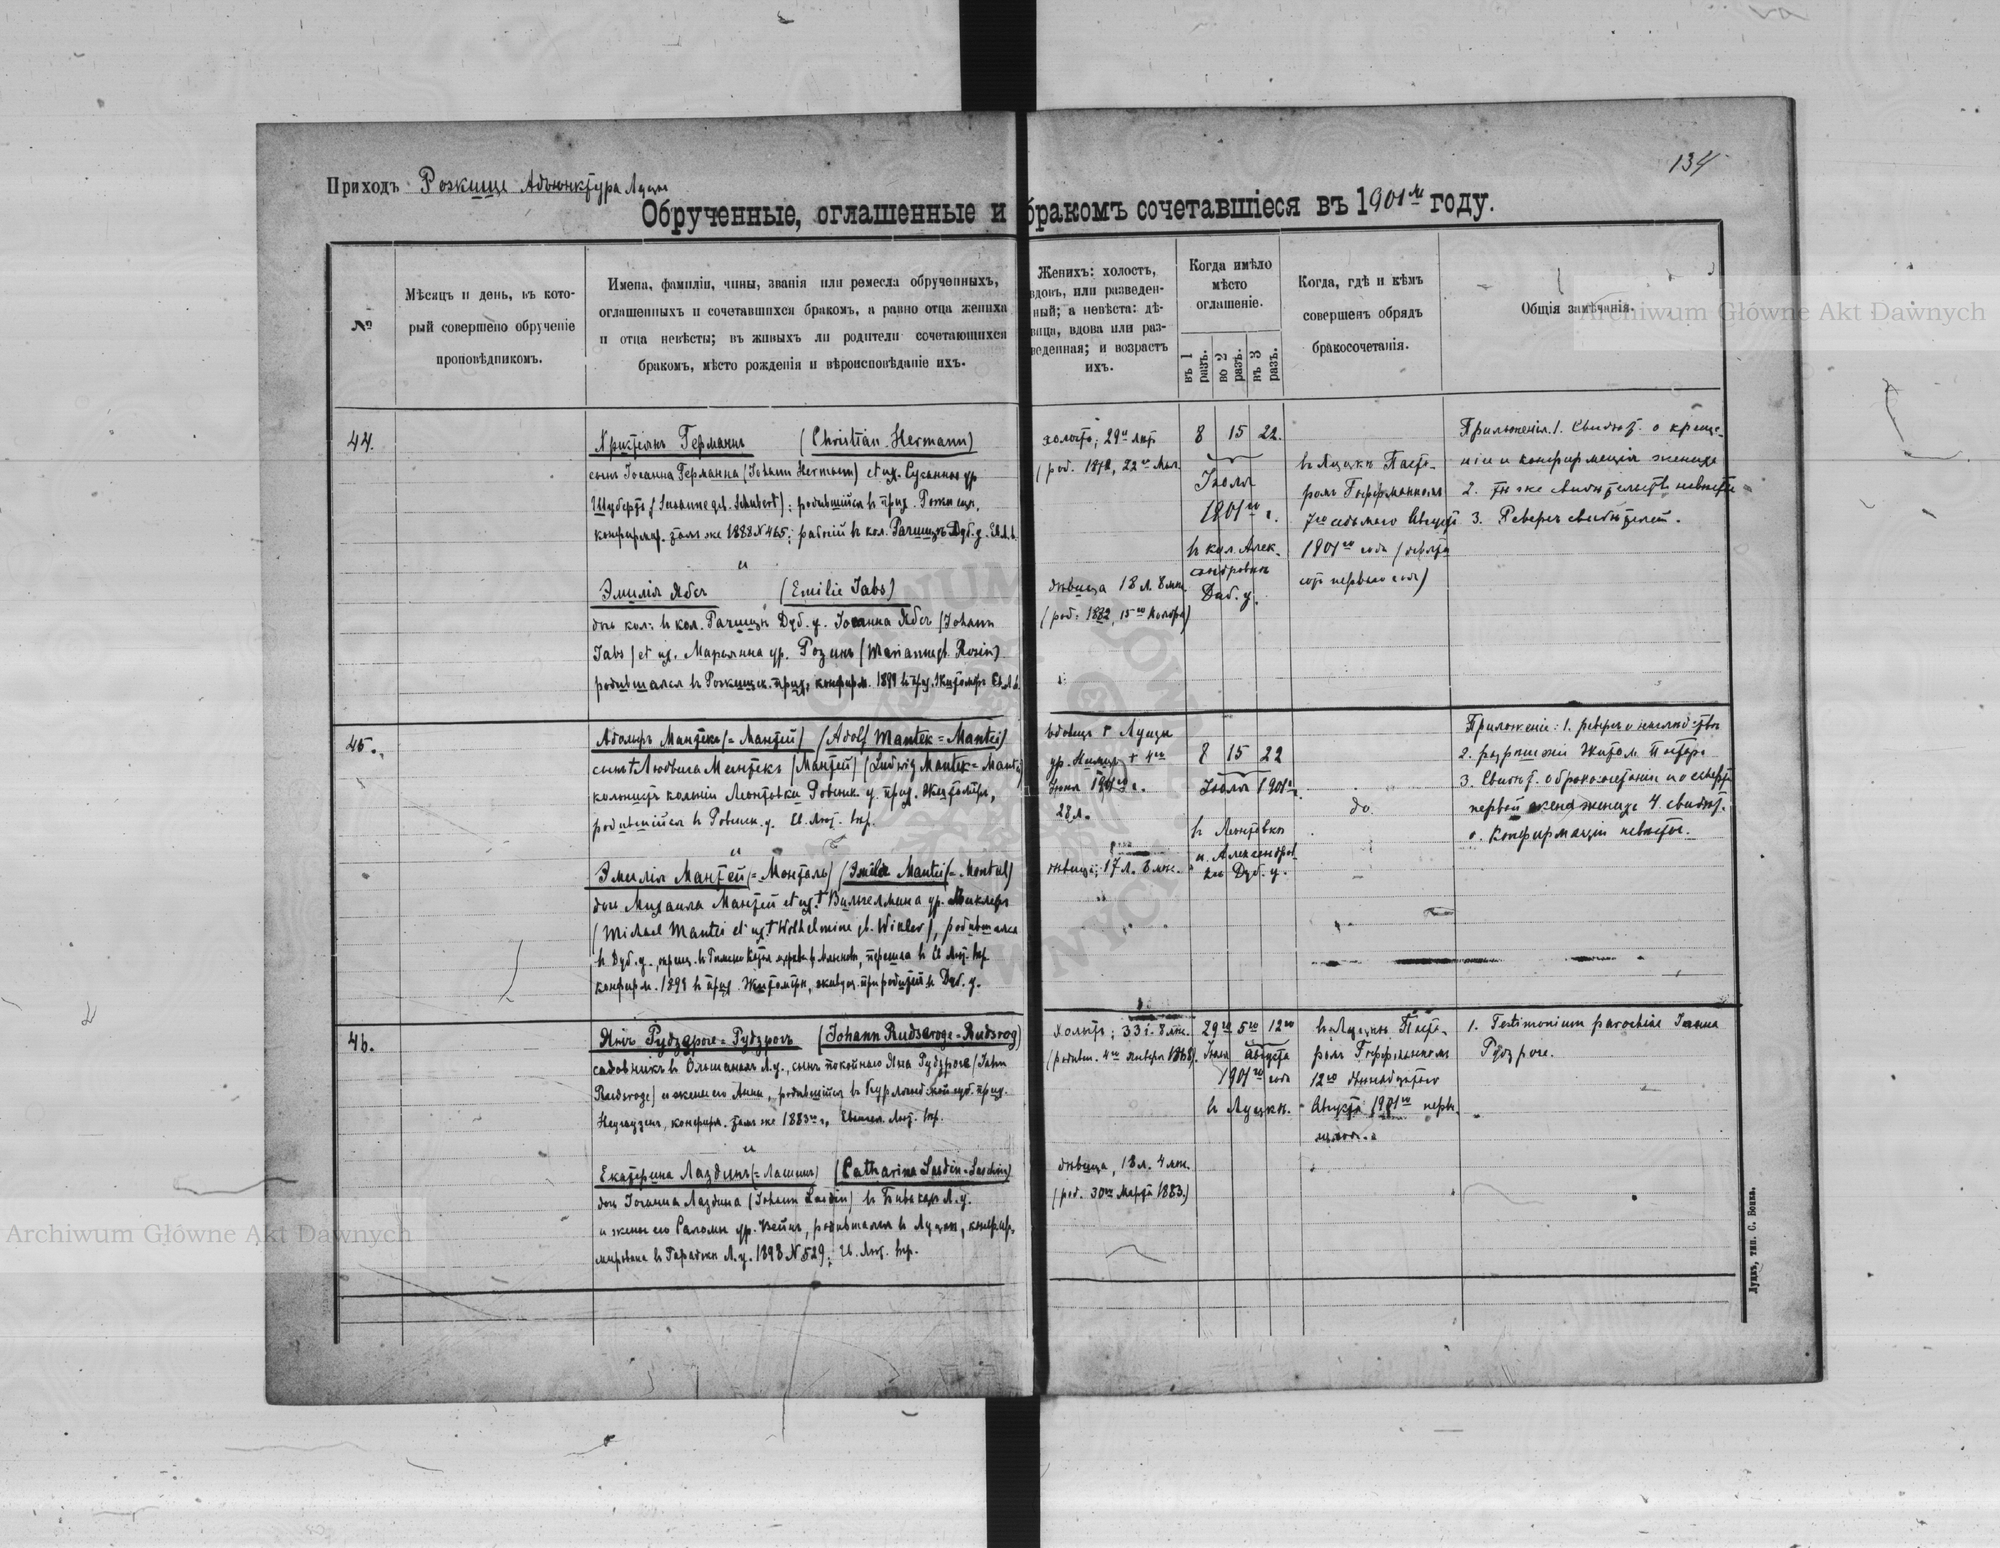 134
Приходъ Рожище Адъюнктура Луцк
Обрученные, оглашенные и бракомъ сочетавшіеся въ 1901 году.
№
Мѣсяцъ и день, въ кото-
рый совершено обрученіе
проповѣдникомъ.
Имена, фамиліи, чины, званія или ремесла обрученныхъ,
оглашенныхъ и сочетавшихся бракомъ, а равно отца жениха
и отца невѣсты; въ живыхъ ли родители сочетающихся
бракомъ, мѣсто рожденія и вѣроисповѣданіе ихъ.
Женихъ: холостъ,
вдовъ, или разведен-
ный; а невѣста: дѣ-
вица, вдова или раз-
веденная; и возрастъ
ихъ.
Когда имѣло
мѣсто
оглашеніе.
въ 1 разъ.
во 2 разъ.
въ 3 разъ.
Когда, гдѣ и кѣмъ
совершенъ обрядъ
бракосочетанія.
Общія замѣчанія.
44.
Христіанъ Германъ (Christian Hermann)
сынъ Іоганна Германна (Johann Hermann) et ux. Сусанна ур
Шубертъ (Susanne geb. Schubert); родившійся в прих. Рожищи,
конфирмар. тамъ же 1888 N 465; рабочій в кол. Рачищъ Дуб. у. Ев. Л. в.
и
Эмилія Ябсъ (Emilie Jabs)
дочь кол. в кол. Рачищъ Дуб. у. Іоганна Ябсъ (Johann
Jabs) et ux. Марьянна ур. Розинъ (Marianne gb. Rosin)
родившаяся в Рожищск. прих., конфирм. 1899 в прих. Житомиръ Ев. Л. в.
холостъ; 29 лѣтъ
(род. 1872, 22 Мая
дѣвица 18 л. 8 мѣс.
(род. 1882, 15 Ноября)
8 15 22.
Іюля
1901 г.
в кол. Алек-
сандровкѣ
Дуб. у.
въ Луцкѣ Пасто-
ромъ Гофферманномъ
7го седьмого Августа
1901го года (тысяча
сотъ первого года)
Приложенія. 1. Свидѣт. о креще-
ніи и конфирмаціи жениха
2. то же свидѣтельство невѣсты
3. Реверсъ свидѣтелей.
45.
Адольфъ Мантекъ (= Мантей) (Adolf Mantek = Mantei)
сынъ † Людвига Мантекъ (Мантей) (Ludwig Mantek = Mantei)
колонистъ колоніи Леонтовки Ровенск. у. прих. Житомиръ,
родившійся в Ровенск. у. Ев. Лют. вѣр.
и
Эмилія Мантей (= Монталь) (Emilie Mantei (= Montal)
дочь Михаила Мантей et ux. † Вильгельмина ур. Винклеръ
(Michael Mantei et ux. † Wilhelmine gb. Winkler), родившаяся
в Дуб. у.
конфирм. 1899 в прих. Житомиръ, живущ. при родителѣ в Дуб. у.
28 л.
дѣвица; 17 л. 8 мѣс.
8 15 22
Іюля 1901 г.
в Леонтовкѣ
и Александров-
кѣ Дуб. у.
do
2. разрѣшеніе Житом. Пастора
3. Свидѣт. о бракосочетаніи и о смерти
первой жены жениха 4. свидѣт.
о конфирмаціи невѣсты.
46.
Янъ Рудзроге = Рудзрогъ (Johann Rudsroge = Rudsrog)
садовникъ в Ольшанахъ Л. у., сынъ покойнаго Яна Рудзроге (Jahn
Rudsroge) и жены его Анны, родившійся въ Курляндской губ. прих.
Нейгаузенъ, конфирм. тамъ же 1883 г., Евангел. Лют. вѣр.
и
Екатерина Лаздинъ (= Лашинъ) (Catharina Lasdin = Laschin)
дочь Іоганна Лаздина (Johann Lasdin) в Л. у.
и жены его Саломы ур. Вейнъ, родившаяся в Луцкѣ, конфир-
мирована в Л. у. 1898 N 529; Ев. Лют. вѣр.
Холостъ; 33 г. 8 мѣс.
(родивш. 4го Января 1868).
дѣвица, 18 л. 4 мѣс.
(род. 30го Марта 1883.)
29го 5го 12го
Іюля Августа
1901го года
в Луцкѣ.
въ Луцкѣ Пасто-
ромъ Гофферманномъ
12го двѣнадцатого
Августа 1901го перв.
1. Testimonium parochiae Іоанна
Рудзроге.
Луцкъ, тип. С. Бонка.
Archiwum Główne Akt Dawnych
Archiwum Główne Akt Dawnych